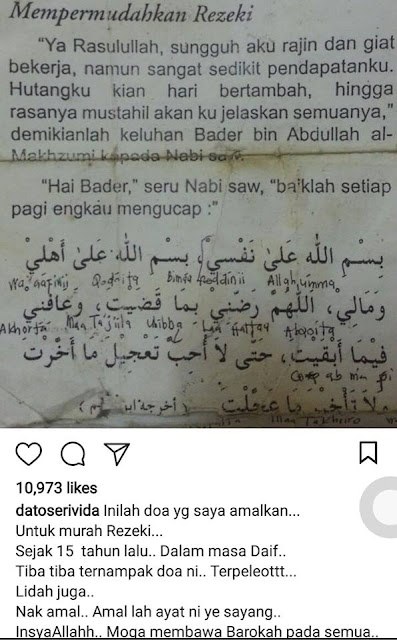 Mempermudahkan Rezeki
"Ya Rasulullah, sungguh aku rajin dan giat
bekerja, namun sangat sedikit pendapatanku.
Hutangku kian hari bertambah, hingga
rasanya mustahil akan ku jelaskan semuanya,"
demikianlah keluhan Bader bin Abdullah al-
Makhzumi kepada Nabi saw.
"Hai Bader," seru Nabi saw, "baiklah setiap
pagi engkau mengucap :"
بِسْمِ اللَّهِ عَلَىٰ نَفْسِيْ، بِسْمِ اللَّهِ عَلَىٰ أَهْلِيْ
Qodoita Allahumma
وَمَالِيْ، اَللَّهُمَّ رَضِّنِيْ بِمَا قَضَيْتَ، وَعَافِنِيْ
Akhorta Maa Ta'jiila uhibba Laa Hattaa Abqoita
فِيْمَا أَبْقَيْتَ، حَتَّىٰ لَا أُحِبَّ تَعْجِيْلَ مَا أَخَّرْتَ
10,973 likes
datoserivida Inilah doa yg saya amalkan...
Untuk murah Rezeki...
Sejak 15 tahun lalu.. Dalam masa Daif..
Tiba tiba ternampak doa ni.. Terpeleottt...
Lidah juga..
Nak amal.. Amal lah ayat ni ye sayang..
InsyaAllahh.. Moga membawa Barokah pada semua..